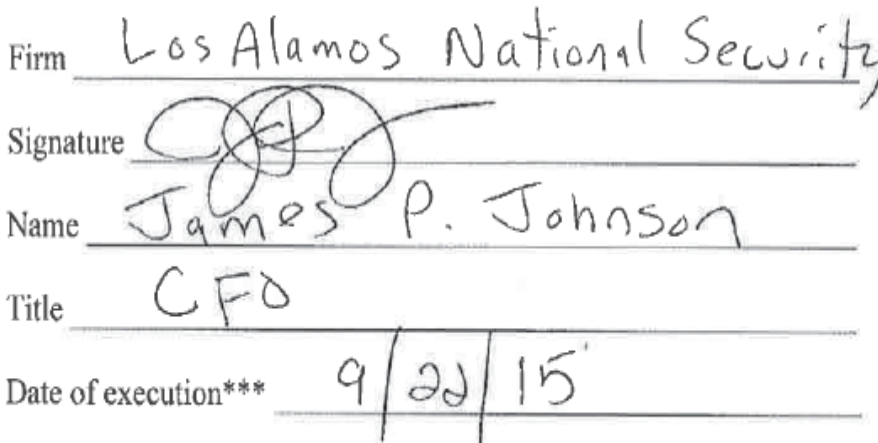 Firm Los Alamos National Security
Signature
Name James P. Johnson
Title CFO
Date of execution*** 9/22/15